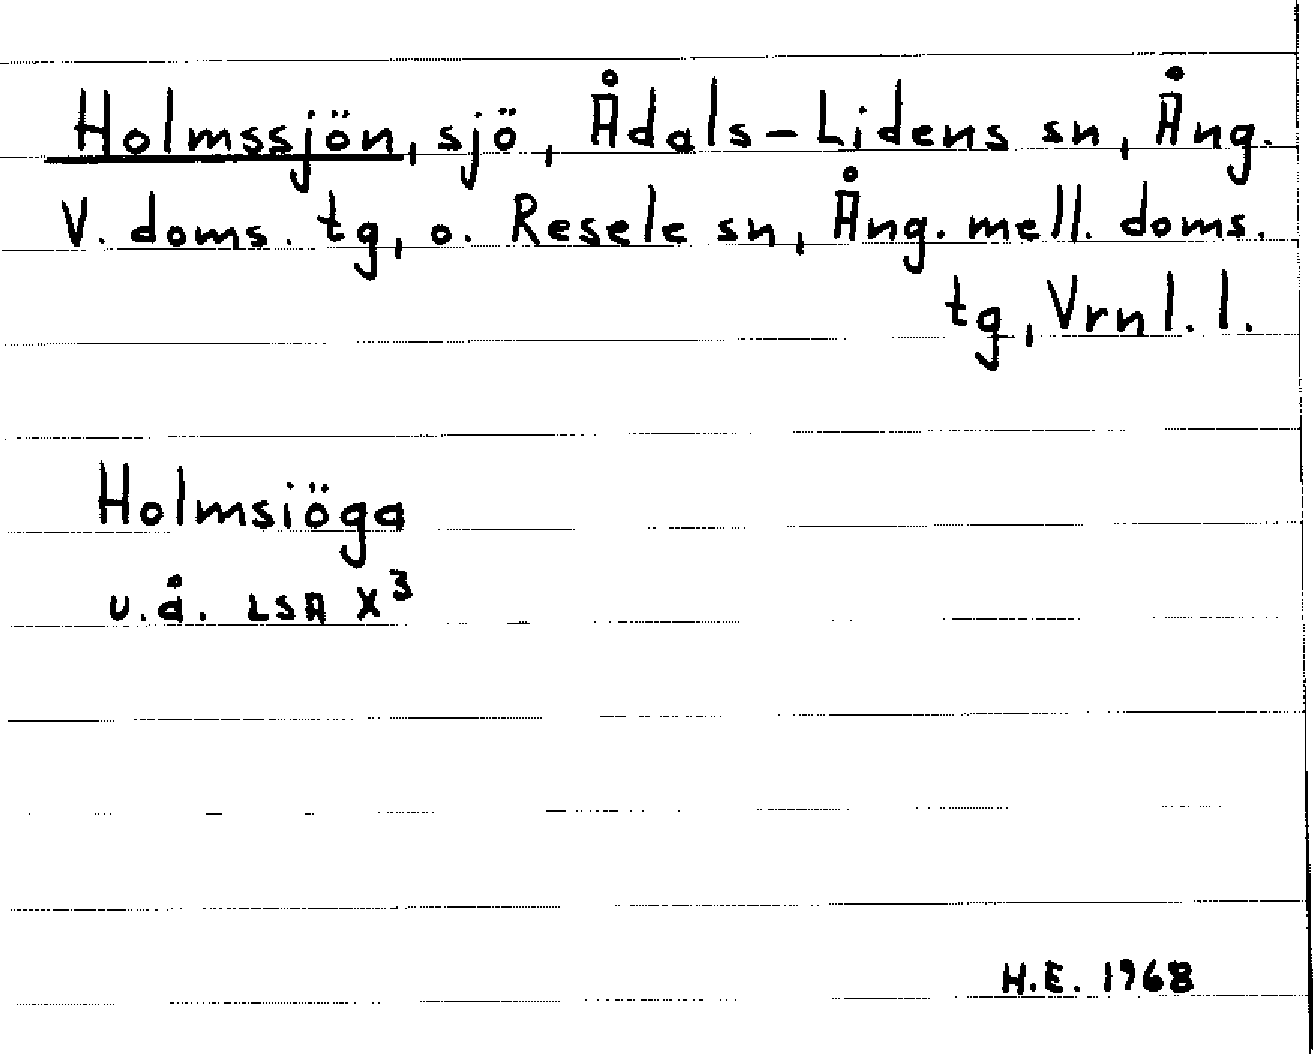 Holmssjön, sjö, Ådals-Lidens sn, Ång.
V. doms. tg, o. Resele sn, Ång. mell. doms.
tg, Vrnl. l.
Holmsiöga
u.å. LSA X³
H.E. 1968